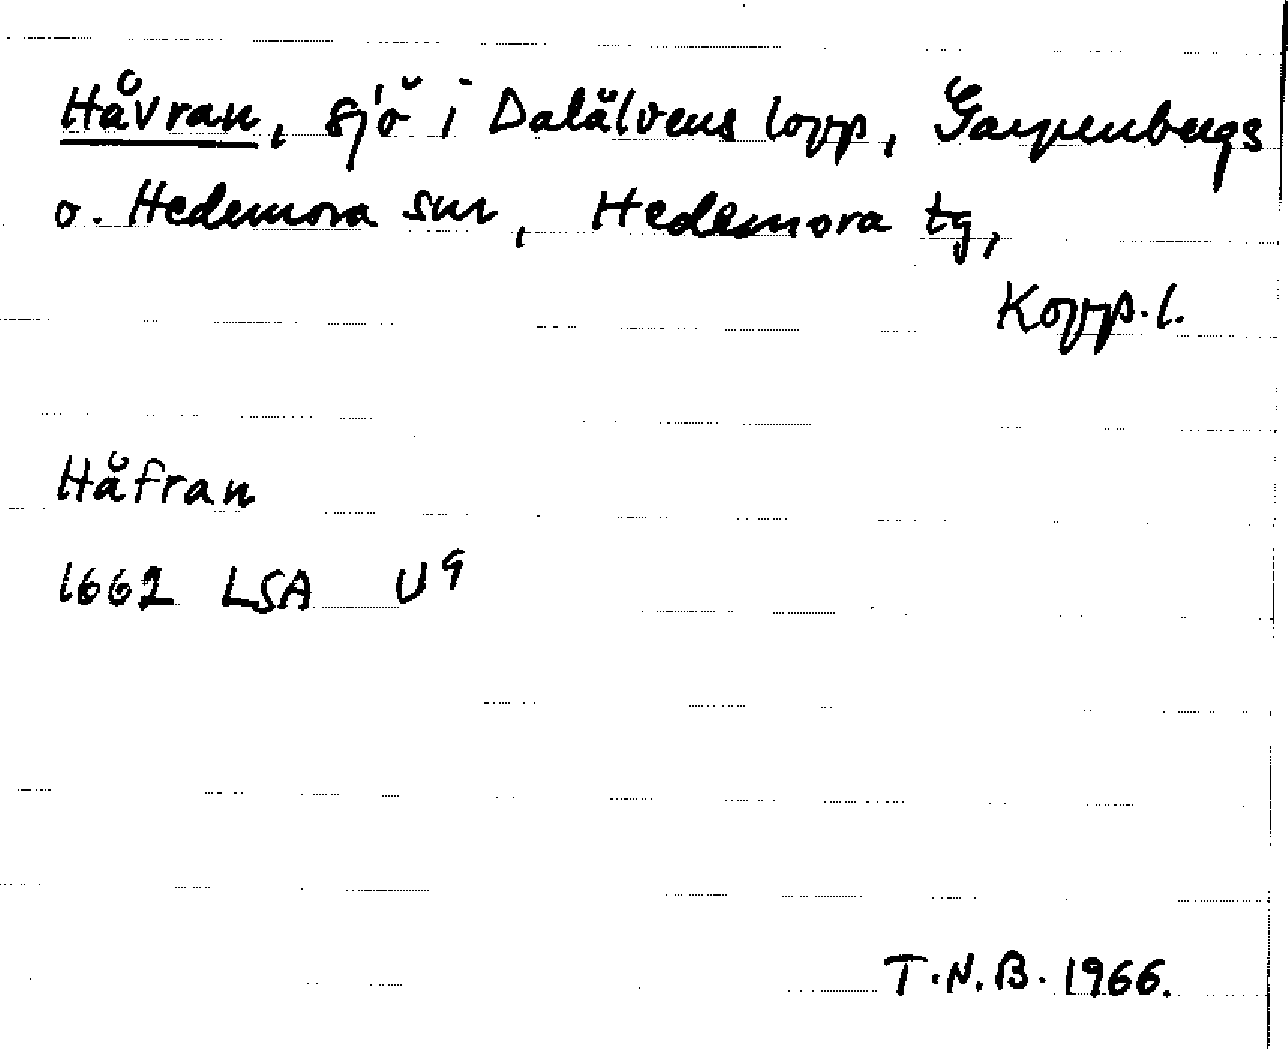 Håvran, sjö i Dalälvens lopp, Garpenbergs
o. Hedemora snr, Hedemora tg,
Kopp.l.
Håfran
1662 LSA U9
T.N.B. 1966.